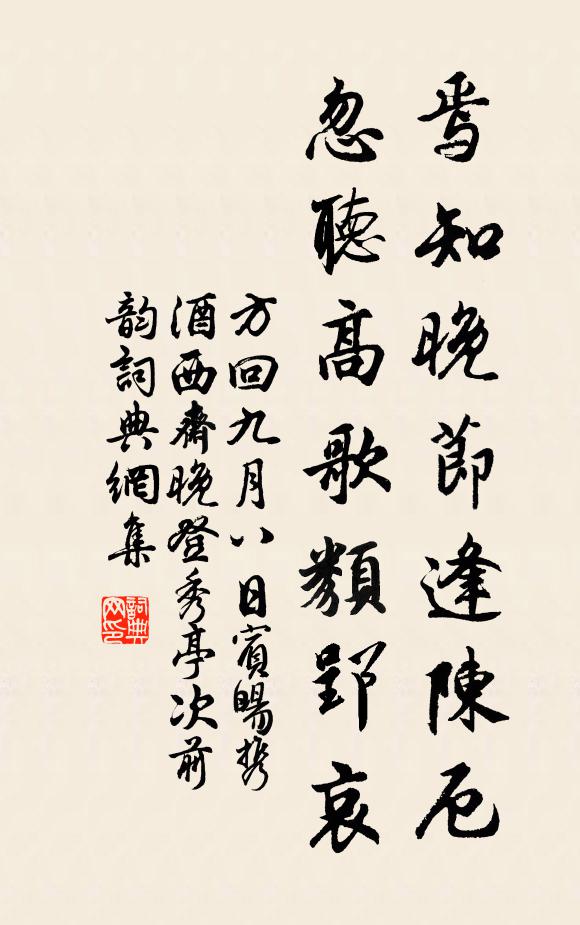 焉知晚節逢陳厄
忽聽高歌類郢哀
方回九月八日賓暘携
酒西齋晚登秀亭次前
韵詞典網集
詞典網印